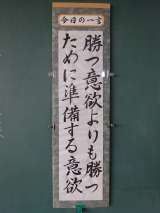 今日の一言
勝つ意欲よりも勝つ
ために準備する意欲